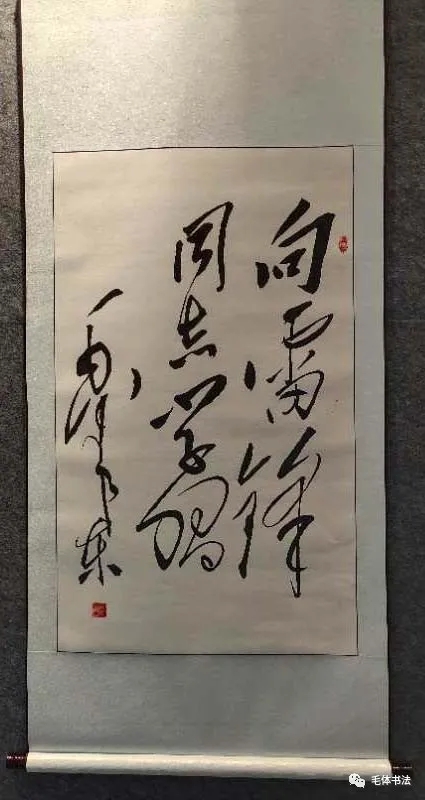 向雷锋
同志学习
毛泽东
毛体书法